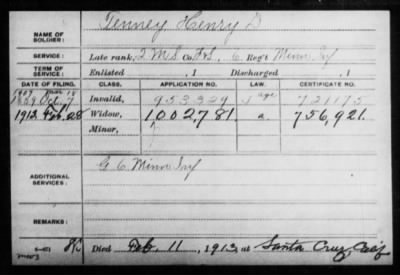 Tenney Henry D
NAME OF SOLDIER:
SERVICE: Late rank, 2 M.S. Co. F&S, 6 Reg't Minn Inf
TERM OF SERVICE: Enlisted , 1 Discharged , 1
DATE OF FILING. CLASS. APPLICATION NO. LAW. CERTIFICATE NO.
Invalid, 953329 721175
1913 Feb. 28 Widow, 1002,781 a. 756,921.
Minor,
ADDITIONAL SERVICES: G 6 Minn Inf
REMARKS:
Died Feb. 11, 1913, at Santa Cruz, Calif